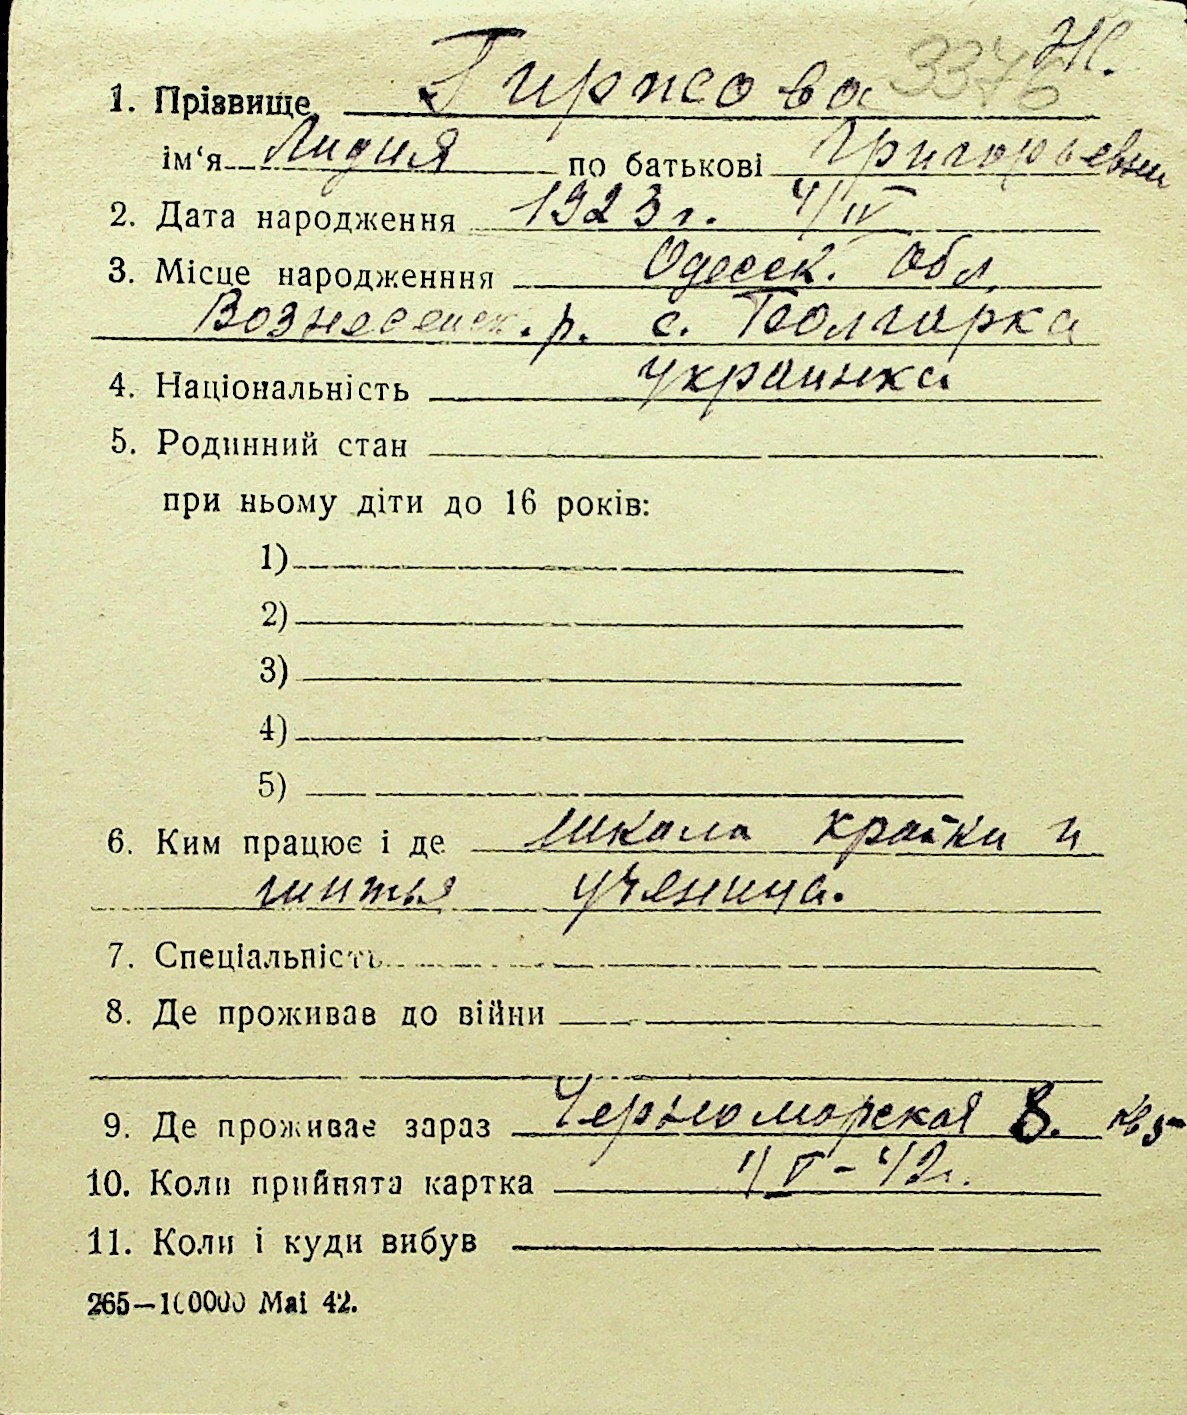 Ж.
3376
1. Прізвище Гиржова
ім‘я Лидия по батькові Григорьевна
2. Дата народження 1923 г. 4/IV
3. Місце народженння Одесск. обл.
Вознесенск. р. с. Болгарка
4. Національність украинка
5. Родинний стан
при ньому діти до 16 років:
1)
2)
3)
4)
5)
6. Ким працює і де школа кройки и
шитья ученица.
7. Спеціальність
8. Де проживав до війни
9. Де проживає зараз Черноморская 8. кв 5
10. Коли прийнята картка 1/V-42г.
11. Коли і куди вибув
265—100000 Mai 42.